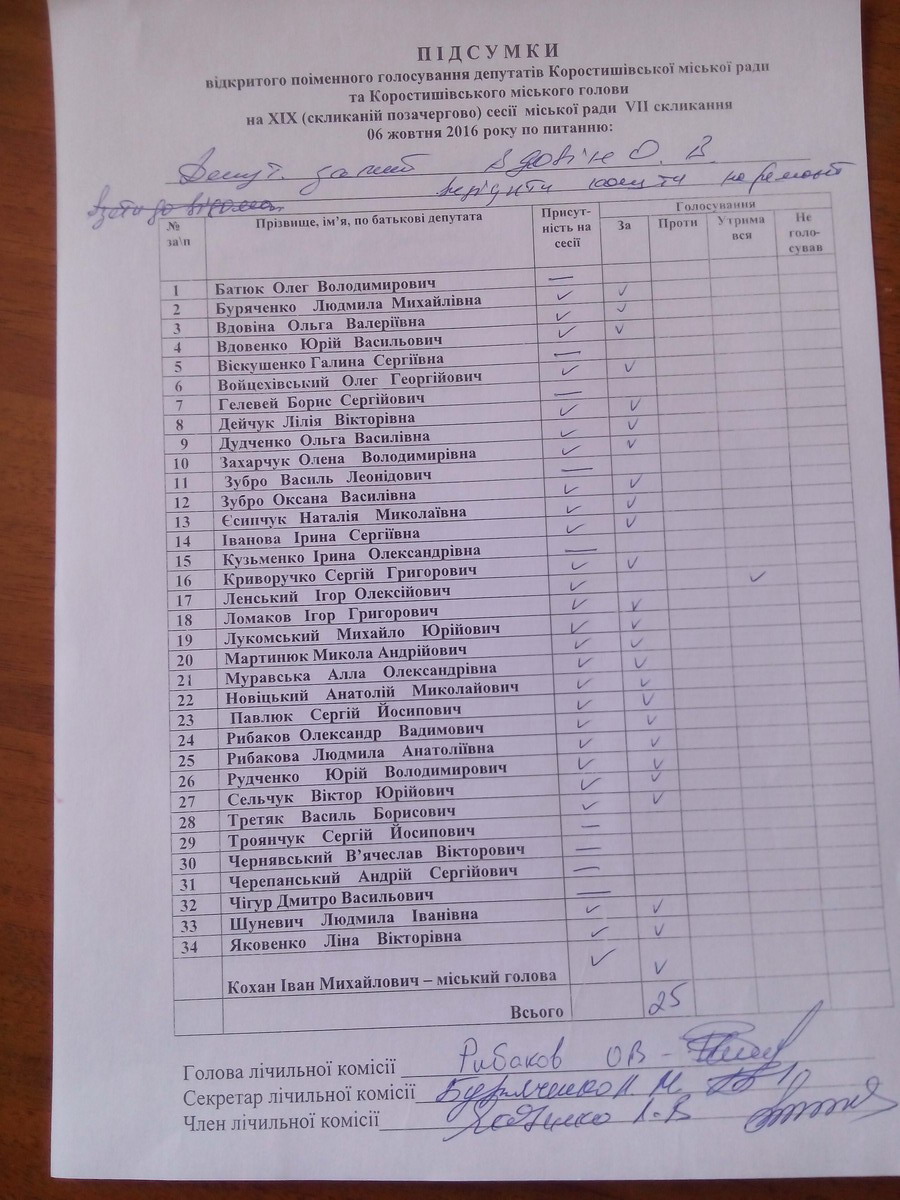 ПІДСУМКИ
відкритого поіменного голосування депутатів Коростишівської міської ради
та Коростишівського міського голови
на XIX (скликаній позачергово) сесії міської ради VII скликання
06 жовтня 2016 року по питанню:
Депут. запит Вдовін О. В.
кошти на ремонт
№ за\п Прізвище, ім’я, по батькові депутата Присут-ність на сесії Голосування
За Проти Утримався Не голо-сував
1 Батюк Олег Володимирович —
2 Буряченко Людмила Михайлівна ✓ ✓
3 Вдовіна Ольга Валеріївна ✓ ✓
4 Вдовенко Юрій Васильович ✓ ✓
5 Віскушенко Галина Сергіївна —
6 Войцехівський Олег Георгійович ✓ ✓
7 Гелевей Борис Сергійович —
8 Дейчук Лілія Вікторівна ✓ ✓
9 Дудченко Ольга Василівна ✓ ✓
10 Захарчук Олена Володимирівна ✓ ✓
11 Зубро Василь Леонідович —
12 Зубро Оксана Василівна ✓ ✓
13 Єсипчук Наталія Миколаївна ✓ ✓
14 Іванова Ірина Сергіївна ✓ ✓
15 Кузьменко Ірина Олександрівна —
16 Криворучко Сергій Григорович ✓ ✓
17 Ленський Ігор Олексійович ✓ ✓
18 Ломаков Ігор Григорович ✓ ✓
19 Лукомський Михайло Юрійович ✓ ✓
20 Мартинюк Микола Андрійович ✓ ✓
21 Муравська Алла Олександрівна ✓ ✓
22 Новіцький Анатолій Миколайович ✓ ✓
23 Павлюк Сергій Йосипович ✓ ✓
24 Рибаков Олександр Вадимович ✓ ✓
25 Рибакова Людмила Анатоліївна ✓ ✓
26 Рудченко Юрій Володимирович ✓ ✓
27 Сельчук Віктор Юрійович ✓ ✓
28 Третяк Василь Борисович ✓ ✓
29 Троянчук Сергій Йосипович —
30 Чернявський В’ячеслав Вікторович —
31 Черепанський Андрій Сергійович —
32 Чігур Дмитро Васильович —
33 Шуневич Людмила Іванівна ✓ ✓
34 Яковенко Ліна Вікторівна ✓ ✓
Кохан Іван Михайлович – міський голова ✓ ✓
Всього 25
Голова лічильної комісії Рибаков О В -
Секретар лічильної комісії Буряченко Л. М.
Член лічильної комісії